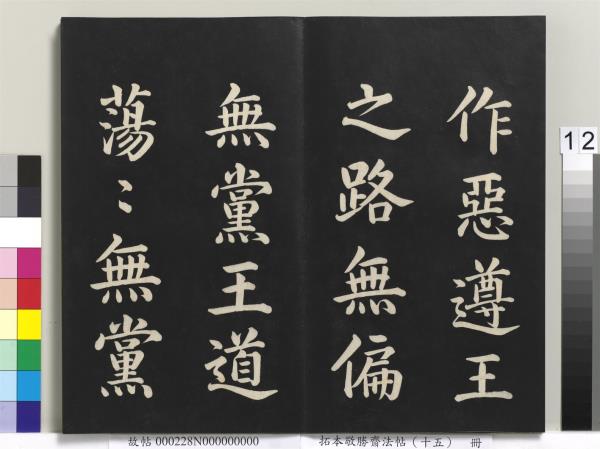 作惡遵王
之路無偏
無黨王道
蕩〻無黨
12
故帖 000228N000000000
拓本敬勝齋法帖（十五） 冊